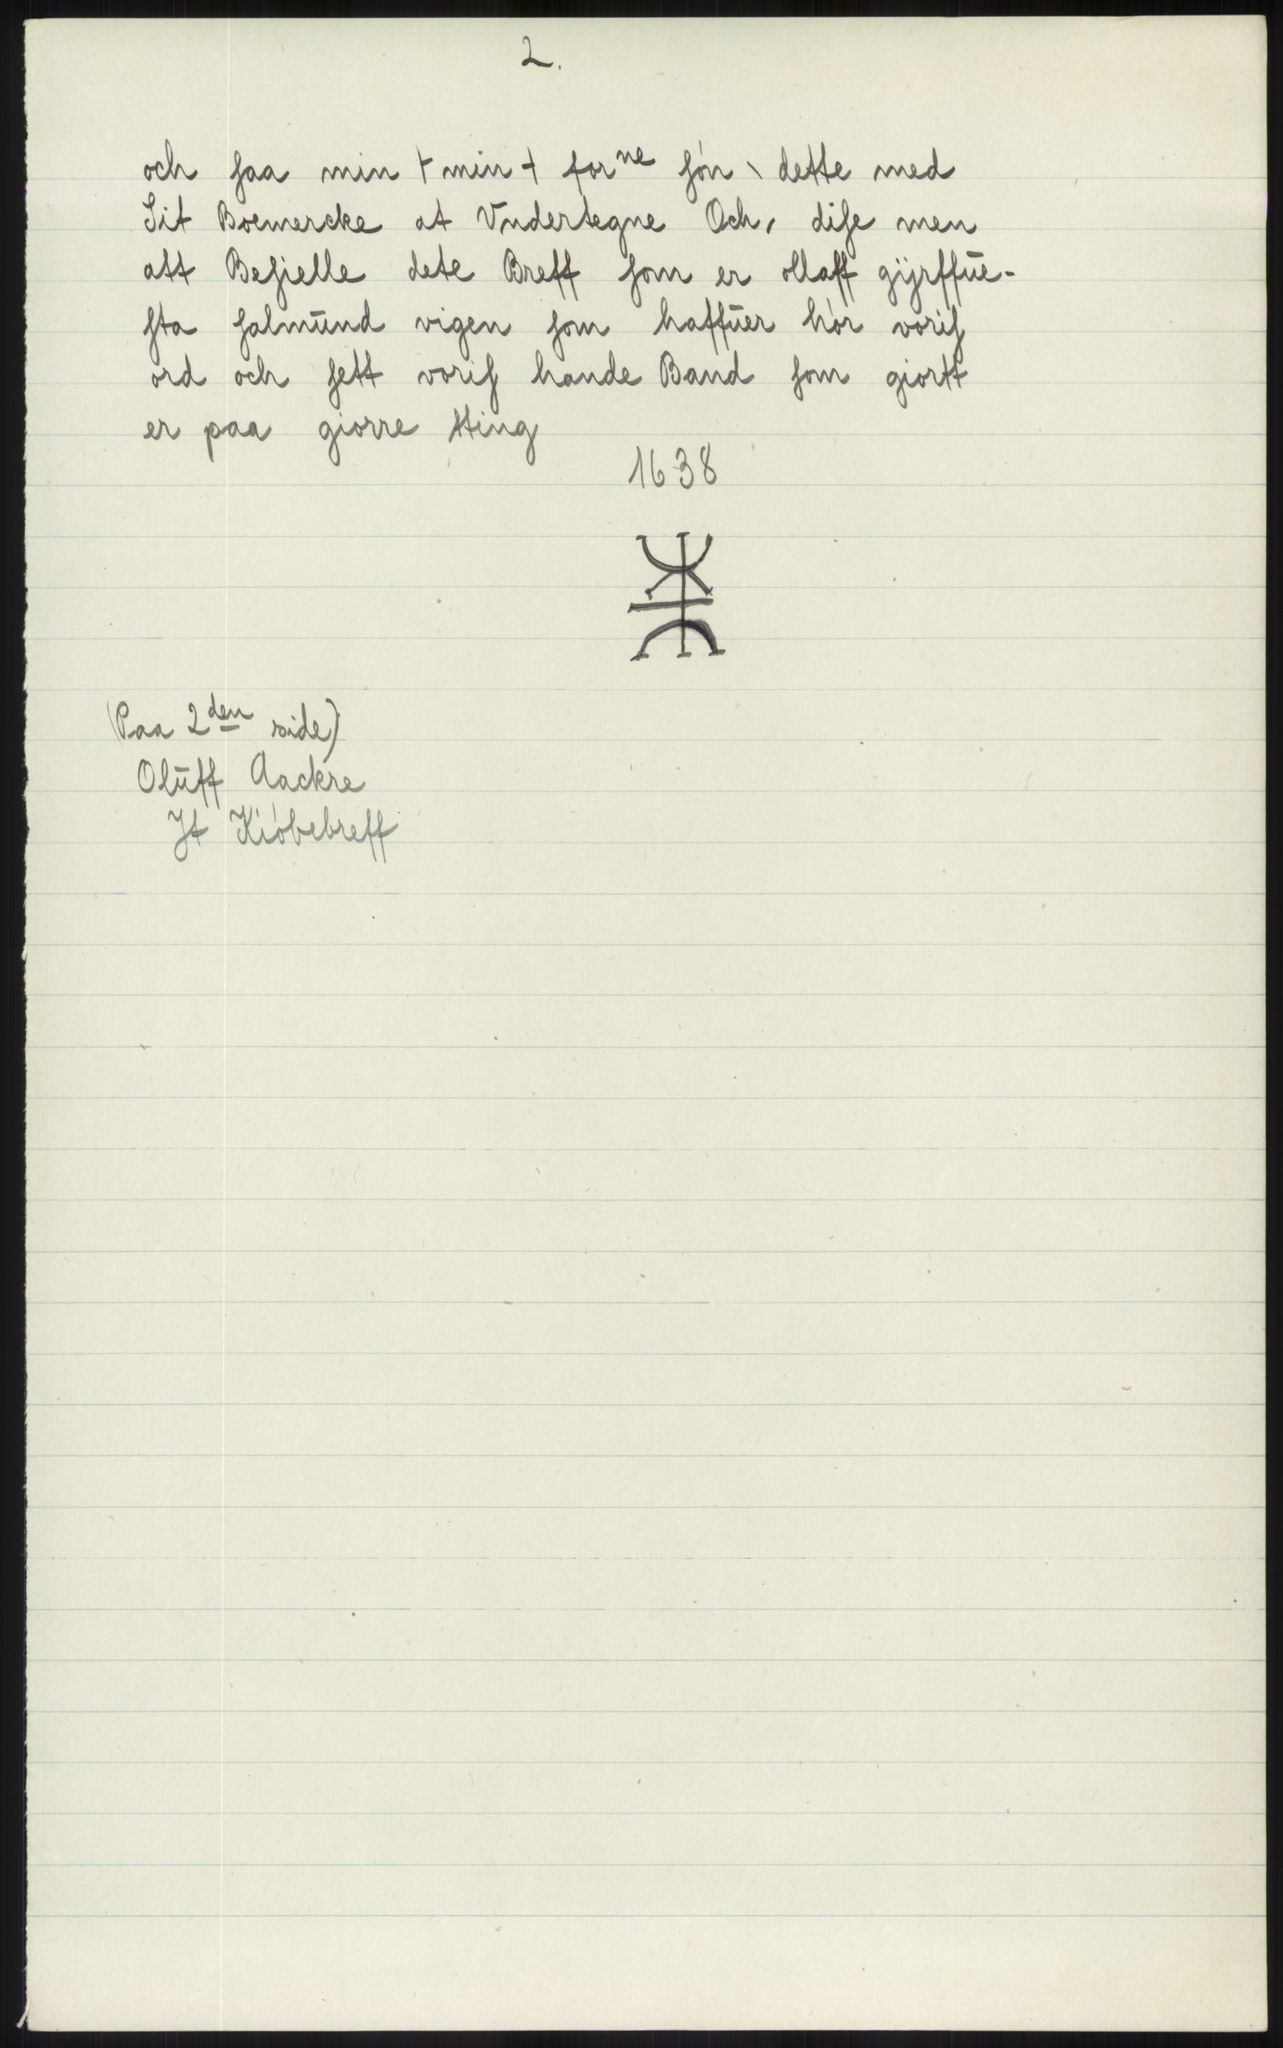 2.
och saa min + min + forne søn \ dette med
Sit Boemercke at Vndertegne Och, dise men
att Besielle dete Breff som er ollaff gÿrffūe-
sta salmūnd vigen som haffūer hør voris
ord och sett voris hande Band som giortt
er paa giorre tting
1638
(Paa 2den side)
Olūff Aackre
Jt Kiøbebreff